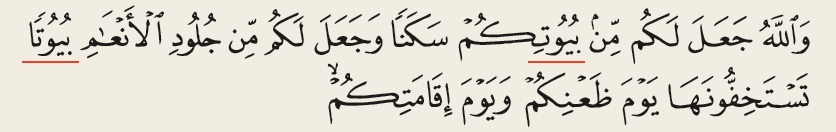 وَٱللَّهُ جَعَلَ لَكُم مِّنۢ بُيُوتِكُمۡ سَكَنٗا وَجَعَلَ لَكُم مِّن جُلُودِ ٱلۡأَنۡعَٰمِ بُيُوتٗا
تَسۡتَخِفُّونَهَا يَوۡمَ ظَعۡنِكُمۡ وَيَوۡمَ إِقَامَتِكُمۡۙ